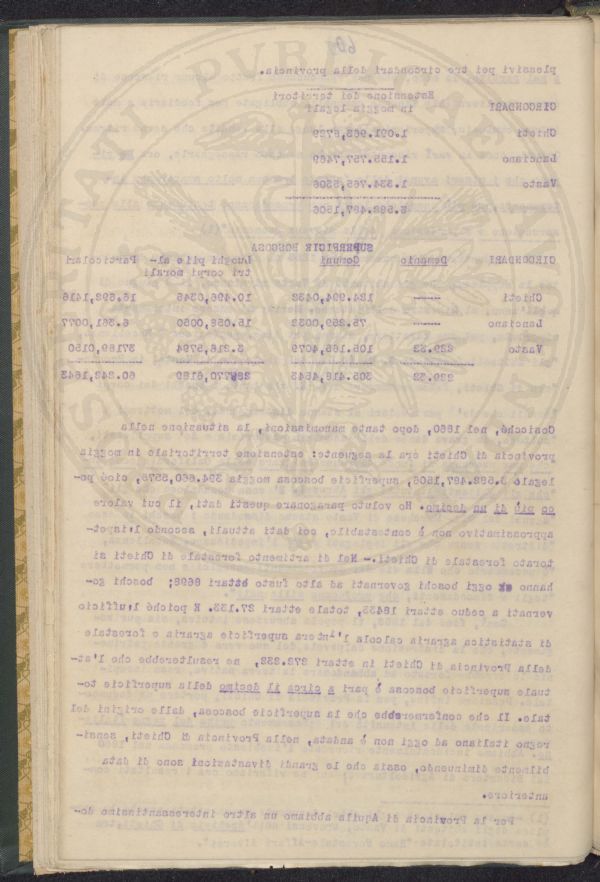 plessivi pei tre circondari della provincia.
Estensione dei territori
CIRCONDARI in moggia legali
Chieti 1.091.963,8729
Lanciano 1.155.757,7469
Vasto 1.334.765,5306
3.582.487,1506
SUPERFICIE BOSCOSA
CIRCONDARI Demanio Comuni Luoghi pii e al- Particolari
tri corpi morali
Chieti ----- 124.994,0432 10.496,0345 16.692,1416
Lanciano ----- 75.259,0032 15.058,0050 6.361,0077
Vasto 229.32 105.165,4079 3.216,5794 37189,0150
229.32 305.418,4543 28.770,6189 60.242,1643
Cosicché, nel 1860, dopo tante manomissioni, la situazione nella
provincia di Chieti era la seguente: estensione territoriale in moggia
legale 3.582.487,1506, superficie boscosa moggia 394.660,5575, cioé po-
co più di un decimo. Ho voluto paragonare questi dati, il cui valore
approssimativo non è contestabile, coi dati attuali, secondo l'ispet-
torato forestale di Chieti.- Nel di artimento forestale di Chieti si
hanno oggi boschi governati ad alto fusto ettari 8698; boschi go-
vernati a ceduo ettari 18435, totale ettari 27.133. E poiché l'ufficio
di statistica agraria calcola l'intera superficie agraria e forestale
della Provincia di Chieti in ettari 272.232, ne resulterebbe che l'at-
tuale superficie boscosa è pari a circa il decimo della superficie to-
tale. Il che confermerebbe che la superficie boscosa, dalle origini del
regno italiano ad oggi non è andata, nella Provincia di Chieti, sensi-
bilmente diminuendo, ossia che le grandi divastazioni sono di data
anteriore.
Per la Provincia di Aquila abbiamo un altro interessantissimo do-